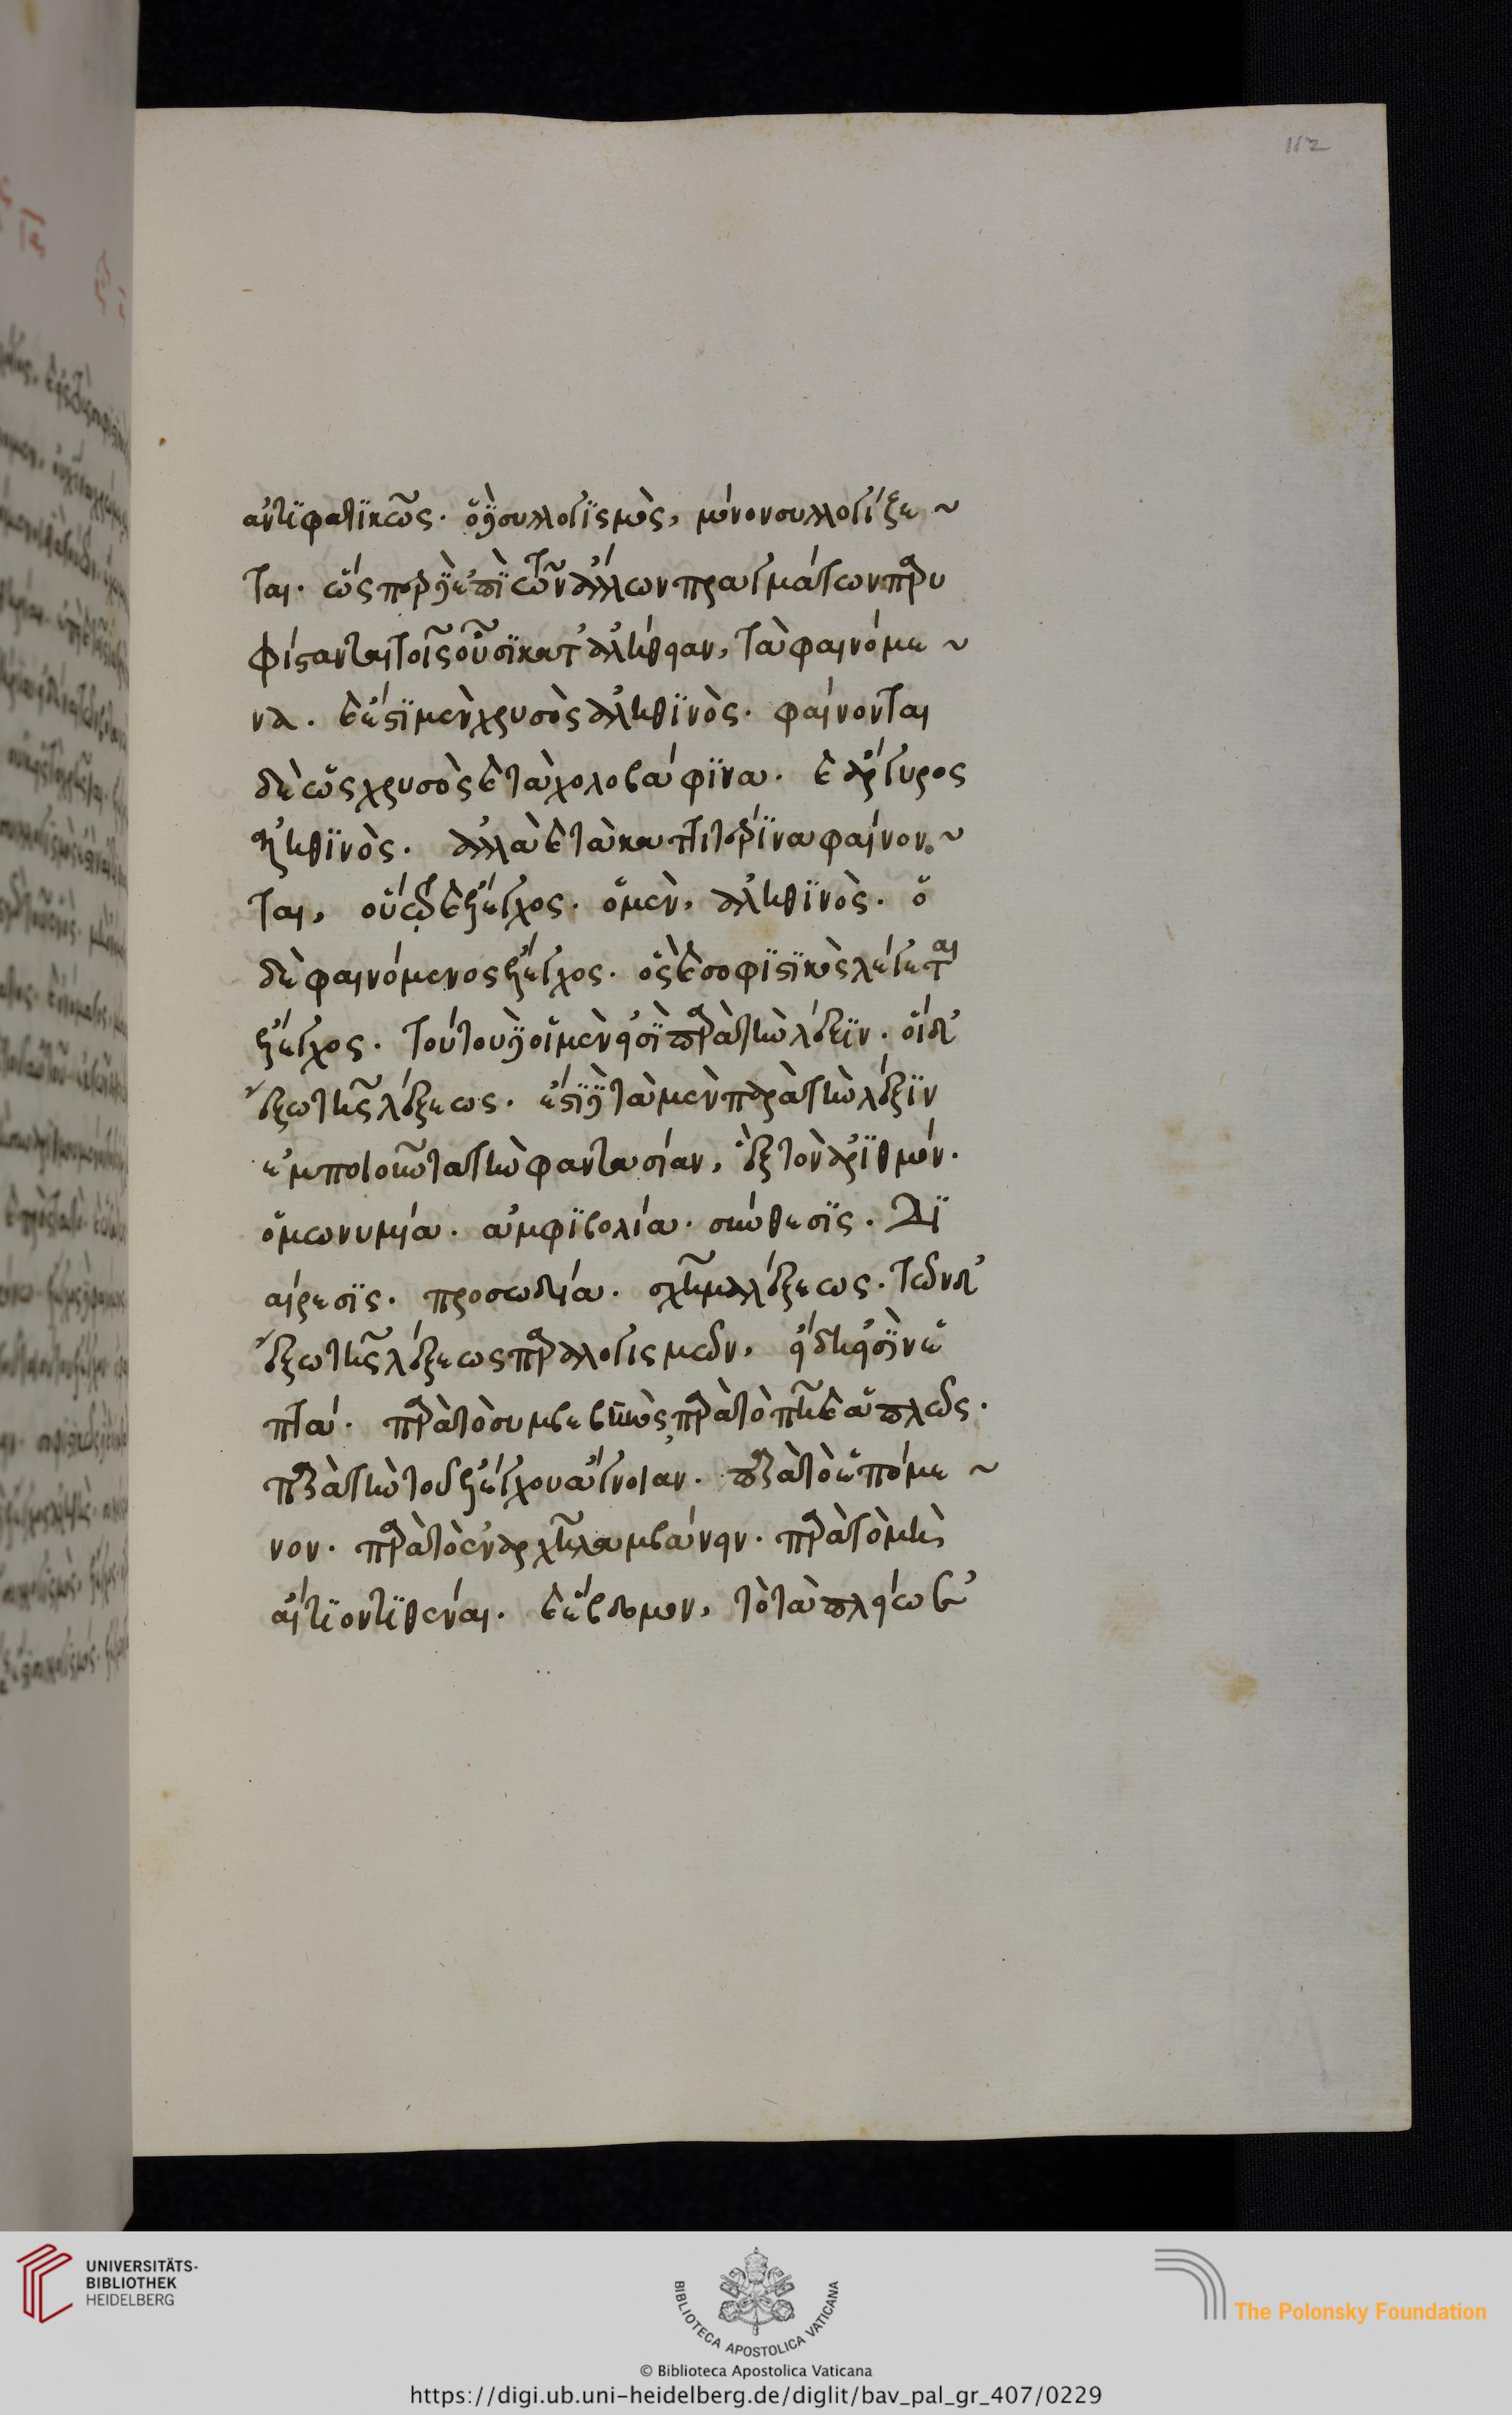 112
ἀντιφατικῶς. ὁ γὰρ συλλογισμὸς, μόνον συλλογίζε ~
ται. ὥσπερ γὰρ ἐπὶ τῶν ἄλλων πραγμάτων παρυ
φίστανται τοῖς οὖσι κατ' ἀλήθειαν, τὰ φαινόμε ~
να. καὶ ἔστι μὲν χρυσὸς ἀληθινὸς. φαίνονται
δὲ ὡς χρυσὸς καὶ τὰ χολοβάφινα. καὶ ἄργυρος
ἀληθινὸς. ἀλλὰ καὶ τὰ καττιτέρινα φαίνον ~
ται, οὕτω καὶ ἔλεγχος. ὁ μὲν, ἀληθινὸς. ὁ
δὲ φαινόμενος ἔλεγχος. ὃς καὶ σοφιστικὸς λέγεται
ἔλεγχος. τούτου γὰρ οἱ μὲν εἰσὶ παρὰ τὴν λέξιν. οἱ δ'
ἔξω τῆς λέξεως. ἔστι γὰρ τὰ μὲν παρὰ τὴν λέξιν
ἐμποιοῦντα τὴν φαντασίαν, ἓξ τὸν ἀριθμόν.
ὁμωνυμία. ἀμφιβολία. σύνθεσις. Δι
αίρεσις. προσωδία. σχῆμα λέξεως. τῶν δ'
ἔξω τῆς λέξεως παραλογισμῶν, εἴδη εἰσὶν ἑ
πτά. παρὰ τὸ συμβεβηκὸς, παρὰ τὸ πῆ καὶ ἁπλῶς.
παρὰ τὴν τοῦ ἐλέγχου ἄγνοιαν. παρὰ τὸ ἑπόμε ~
νον. παρὰ τὸ ἐν ἀρχῆ λαμβάνειν. παρὰ τὸ μὴ
αἴτιον τιθέναι. καὶ ἕβδομον, τὸ τὰ πλείω
UNIVERSITÄTS-
BIBLIOTHEK
HEIDELBERG
BIBLIOTECA APOSTOLICA VATICANA
The Polonsky Foundation
© Biblioteca Apostolica Vaticana
https://digi.ub.uni-heidelberg.de/diglit/bav_pal_gr_407/0229